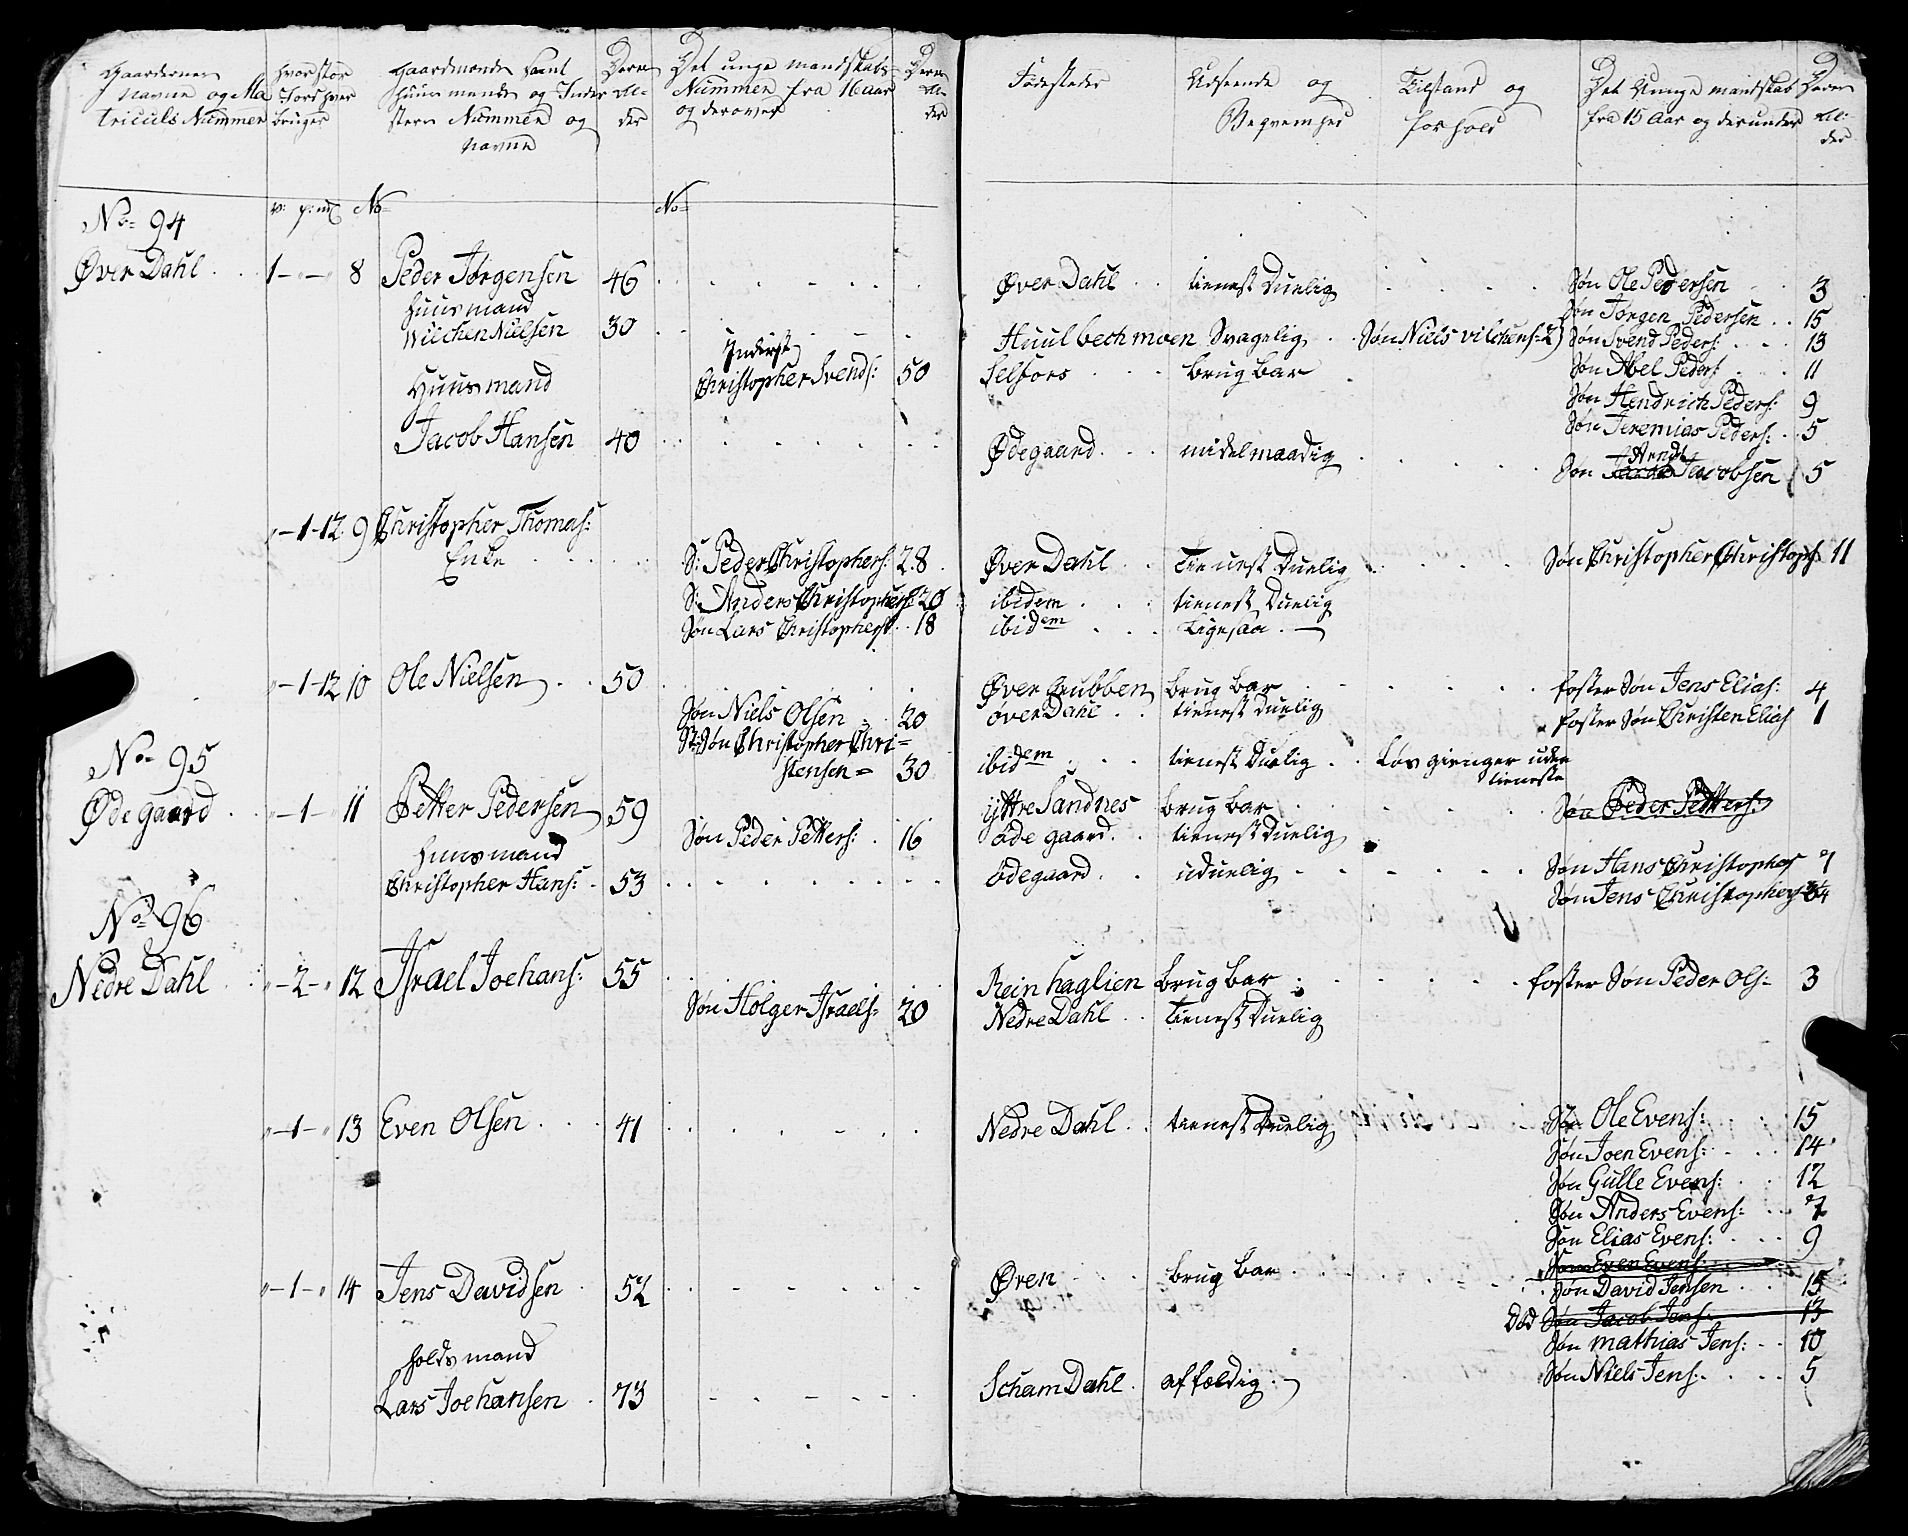 Gaardernes navne og Matriculs Nummer
hvor stor Jord hver bruger
Gaardmænds samt Huusmænds og Inderstern Nummer og navne
Deres Alder
Det unge mandskabs Nummer fra 16 aar og derover
Deres Alder
Fødesteder
Udseende og Beqvemhed
Tilstand og forhold
Det Unge mandskab fra 15 Aar og derunder
Deres Alder
No= 94 v: p: mk No= No=
Øver Dahl 1 - " - " 8 Peder Jørgensen 46 Øver Dahl tienest Duelig Søn Ole Pedersen 3
Huusmand Søn Jørgen Pedersen 15
Wilchen Nielsen 30 Huulbechmoen Svagelig Søn Niels Vilchens: 2) Søn Svend Peders: 13
Inderst
Huusmand Christopher Svends: 50 Selfors brugbar Søn Abel Peders: 11
Søn Hendrich Peders: 9
Jacob Hansen 40 Ødegaard midelmaadig Søn Jeremias Peders: 5
Arndt
Søn Jacobsen 5
" - 1 - 12 9 Christopher Thomas:
Enke S: Peder Christophers: 28 Øver Dahl Tienest Duelig Søn Christopher Christoph 11
S: Anders Christophers: 20 ibidem tienest Duelig
Søn Lars Christophers: 18 ibidem Ligesaa
" - 1 - 12 10 Ole Nielsen 50 Øver Grubben brugbar foster Søn Jens Elias: 4
Søn Niels Olsen 20 øver Dahl tienest Duelig foster Søn Christen Elias 1
St: Søn Christopher Chri=
stensen = 30 ibidem tienest Duelig Løsgienger uden tieneste
No= 95
Ødegaard " - 1 - " 11 Petter Pedersen 59 yttre Sandnes brugbar Søn Peder Petters:
Søn Peder Petters: 16 ødegaard tienest Duelig
Huusmand
Christopher Hans: 53 ødegaard uduelig Søn Hans Christophers 7
Søn Jens Christophers 3/4
No= 96
Nedre Dahl " - 2 - " 12 Israel Joehans: 55 Reinhaglien brugbar foster Søn Peder Ols= 3
Søn Holger Israels= 20 Nedre Dahl Tienest Duelig
" - 1 - " 13 Even Olsen 41 Nedre Dahl tienest Duelig Søn Ole Evens: 15
Søn Joen Evens: 14
Søn Gulle Evens: 12
Søn Anders Evens: 7
Søn Elias Evens: 9
Søn Even Evens:
" - 1 - " 14 Jens Davidsen 52 Øren brugbar Søn David Jensen 15
Død Søn Jacob Jens: 13
Søn Mathias Jens: 10
holdsmand Søn Niels Jens: 5
Lars Joehansen 73 Scham Dahl affældig